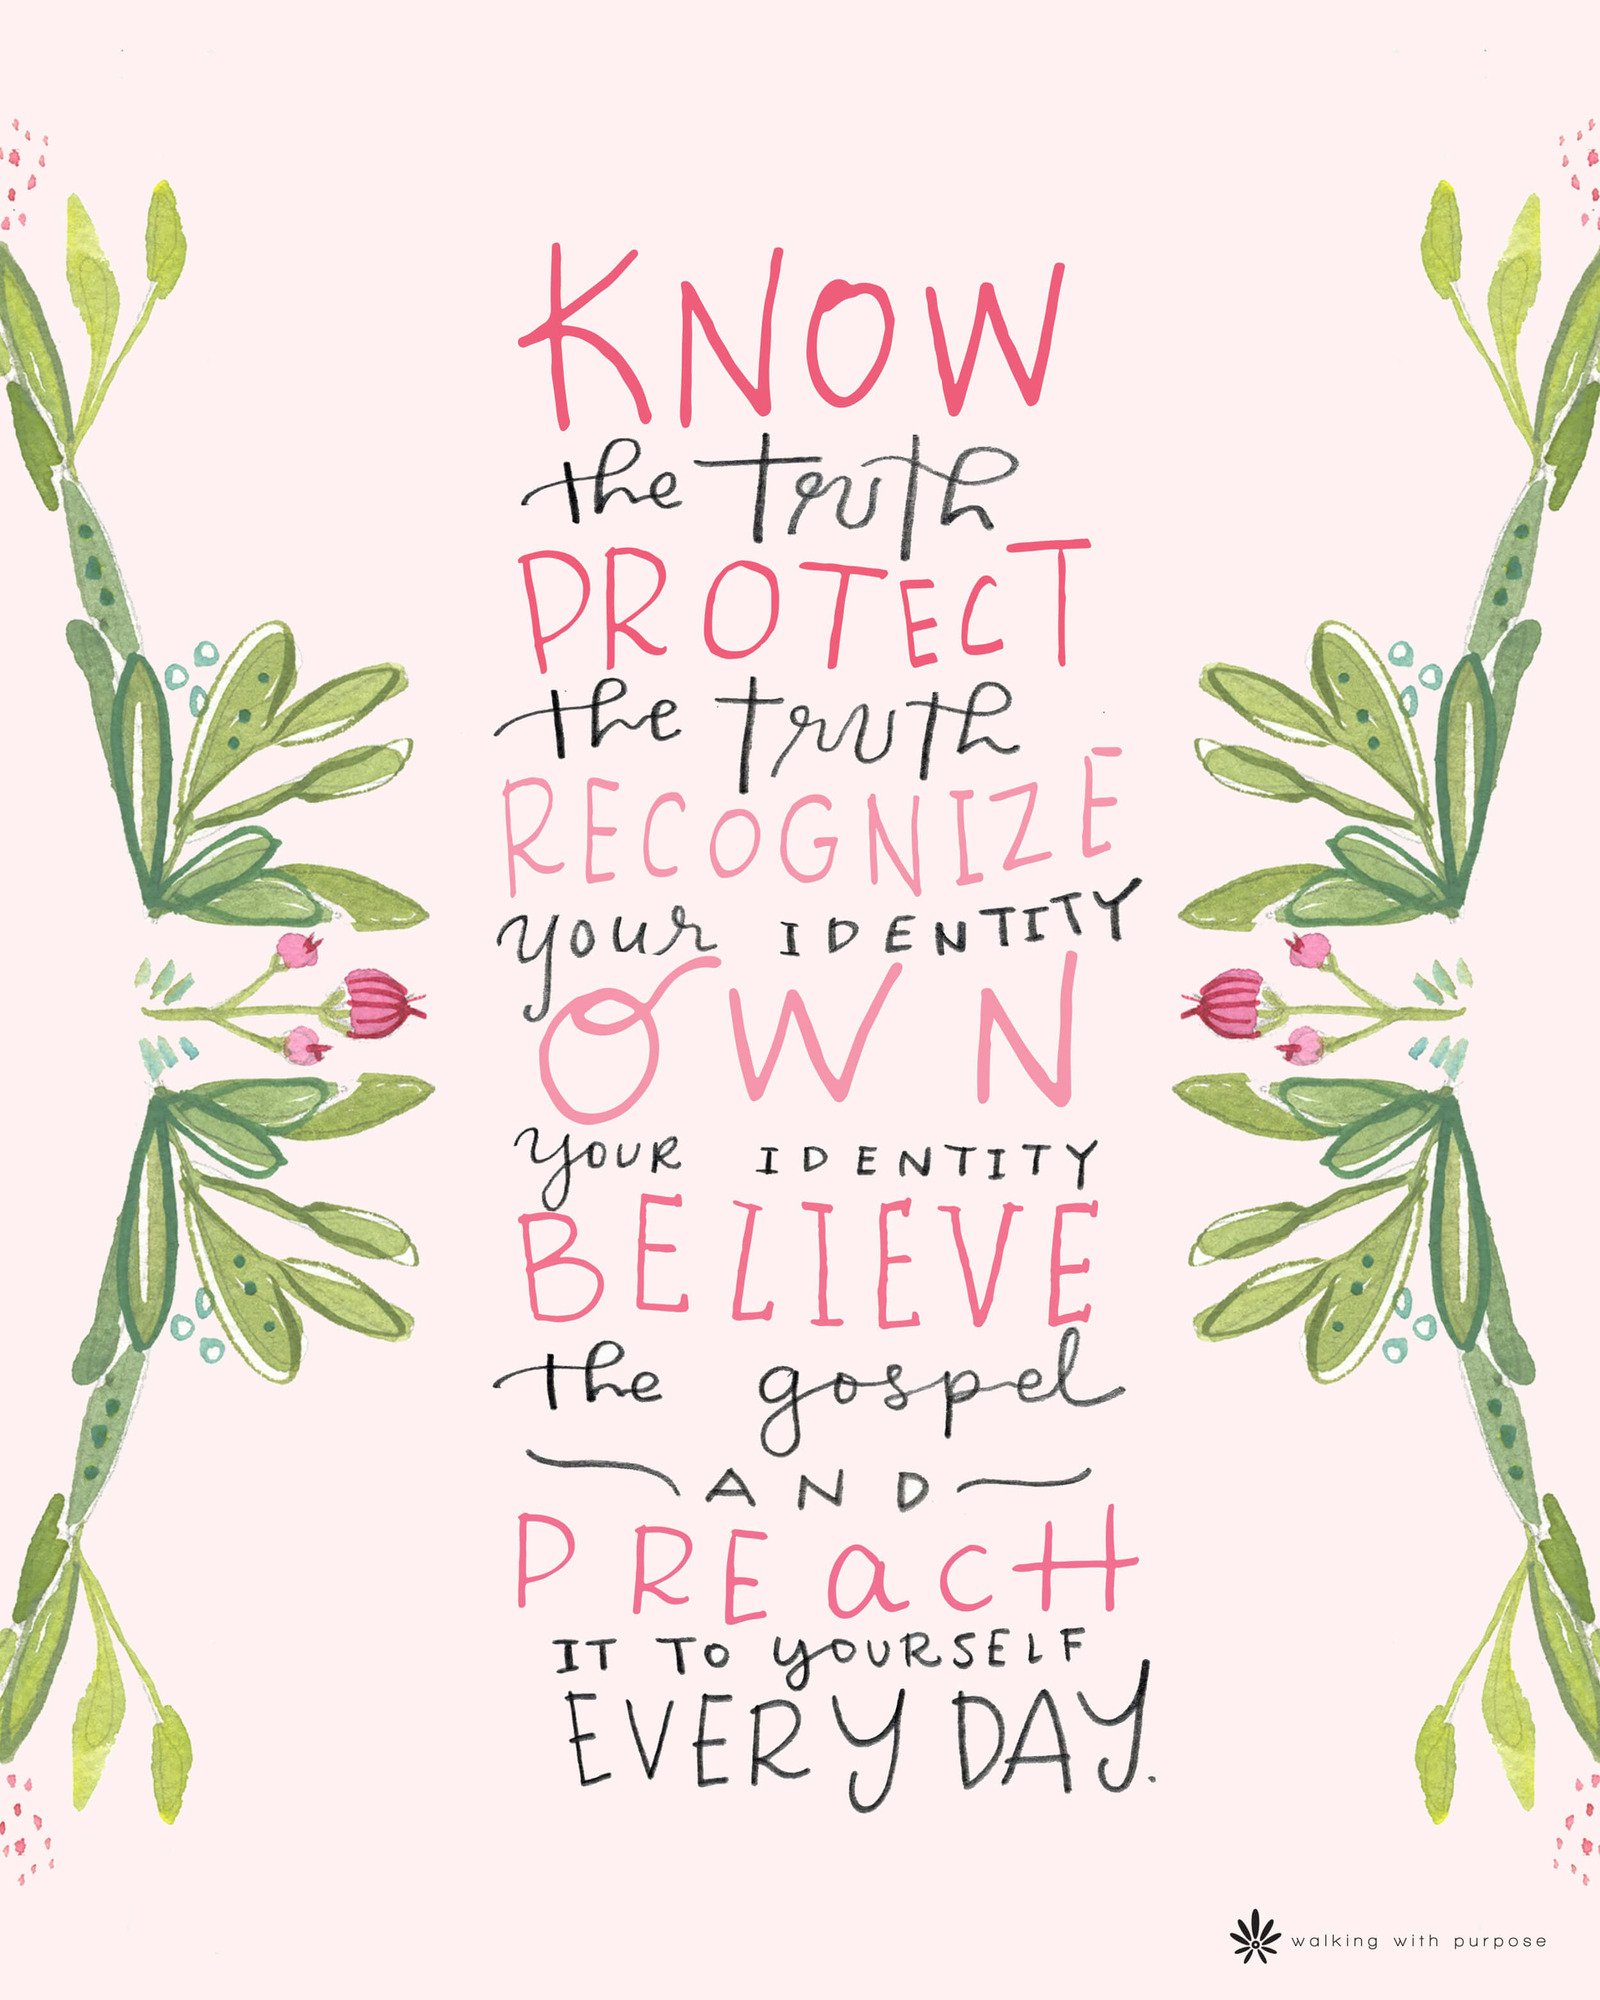 KNOW
the truth
PROTECT
the truth
RECOGNIZE
your IDENTITY
OWN
YOUR IDENTITY
BELIEVE
the gospel
AND
PREaCH
IT TO YOURSELF
EVERY DAY.
walking with purpose